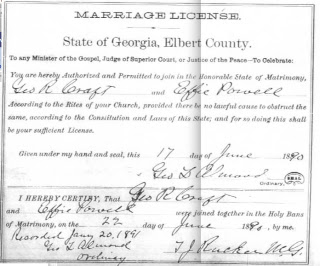 MARRIAGE LICENSE.
State of Georgia, Elbert County.
To any Minister of the Gospel, Judge of Superior Court, or Justice of the Peace—To Celebrate:
You are hereby Authorized and Permitted to join in the Honorable State of Matrimony,
Geo R Craft and Effie Powell
According to the Rites of your Church, provided there be no lawful cause to obstruct the
same, according to the Constitution and Laws of this State; and for so doing this shall
be your sufficient License.
Given under my hand and seal, this 17 day of June 1890
Geo L Almond
Ordinary, SEAL
I HEREBY CERTIFY, That Geo R Craft
and Effie Powell were joined together in the Holy Bans
of Matrimony, on the 22 day of June 1890, by me.
Recorded Jany 20, 1891 T J Rucker M.G.
Geo L Almond
Ordinary